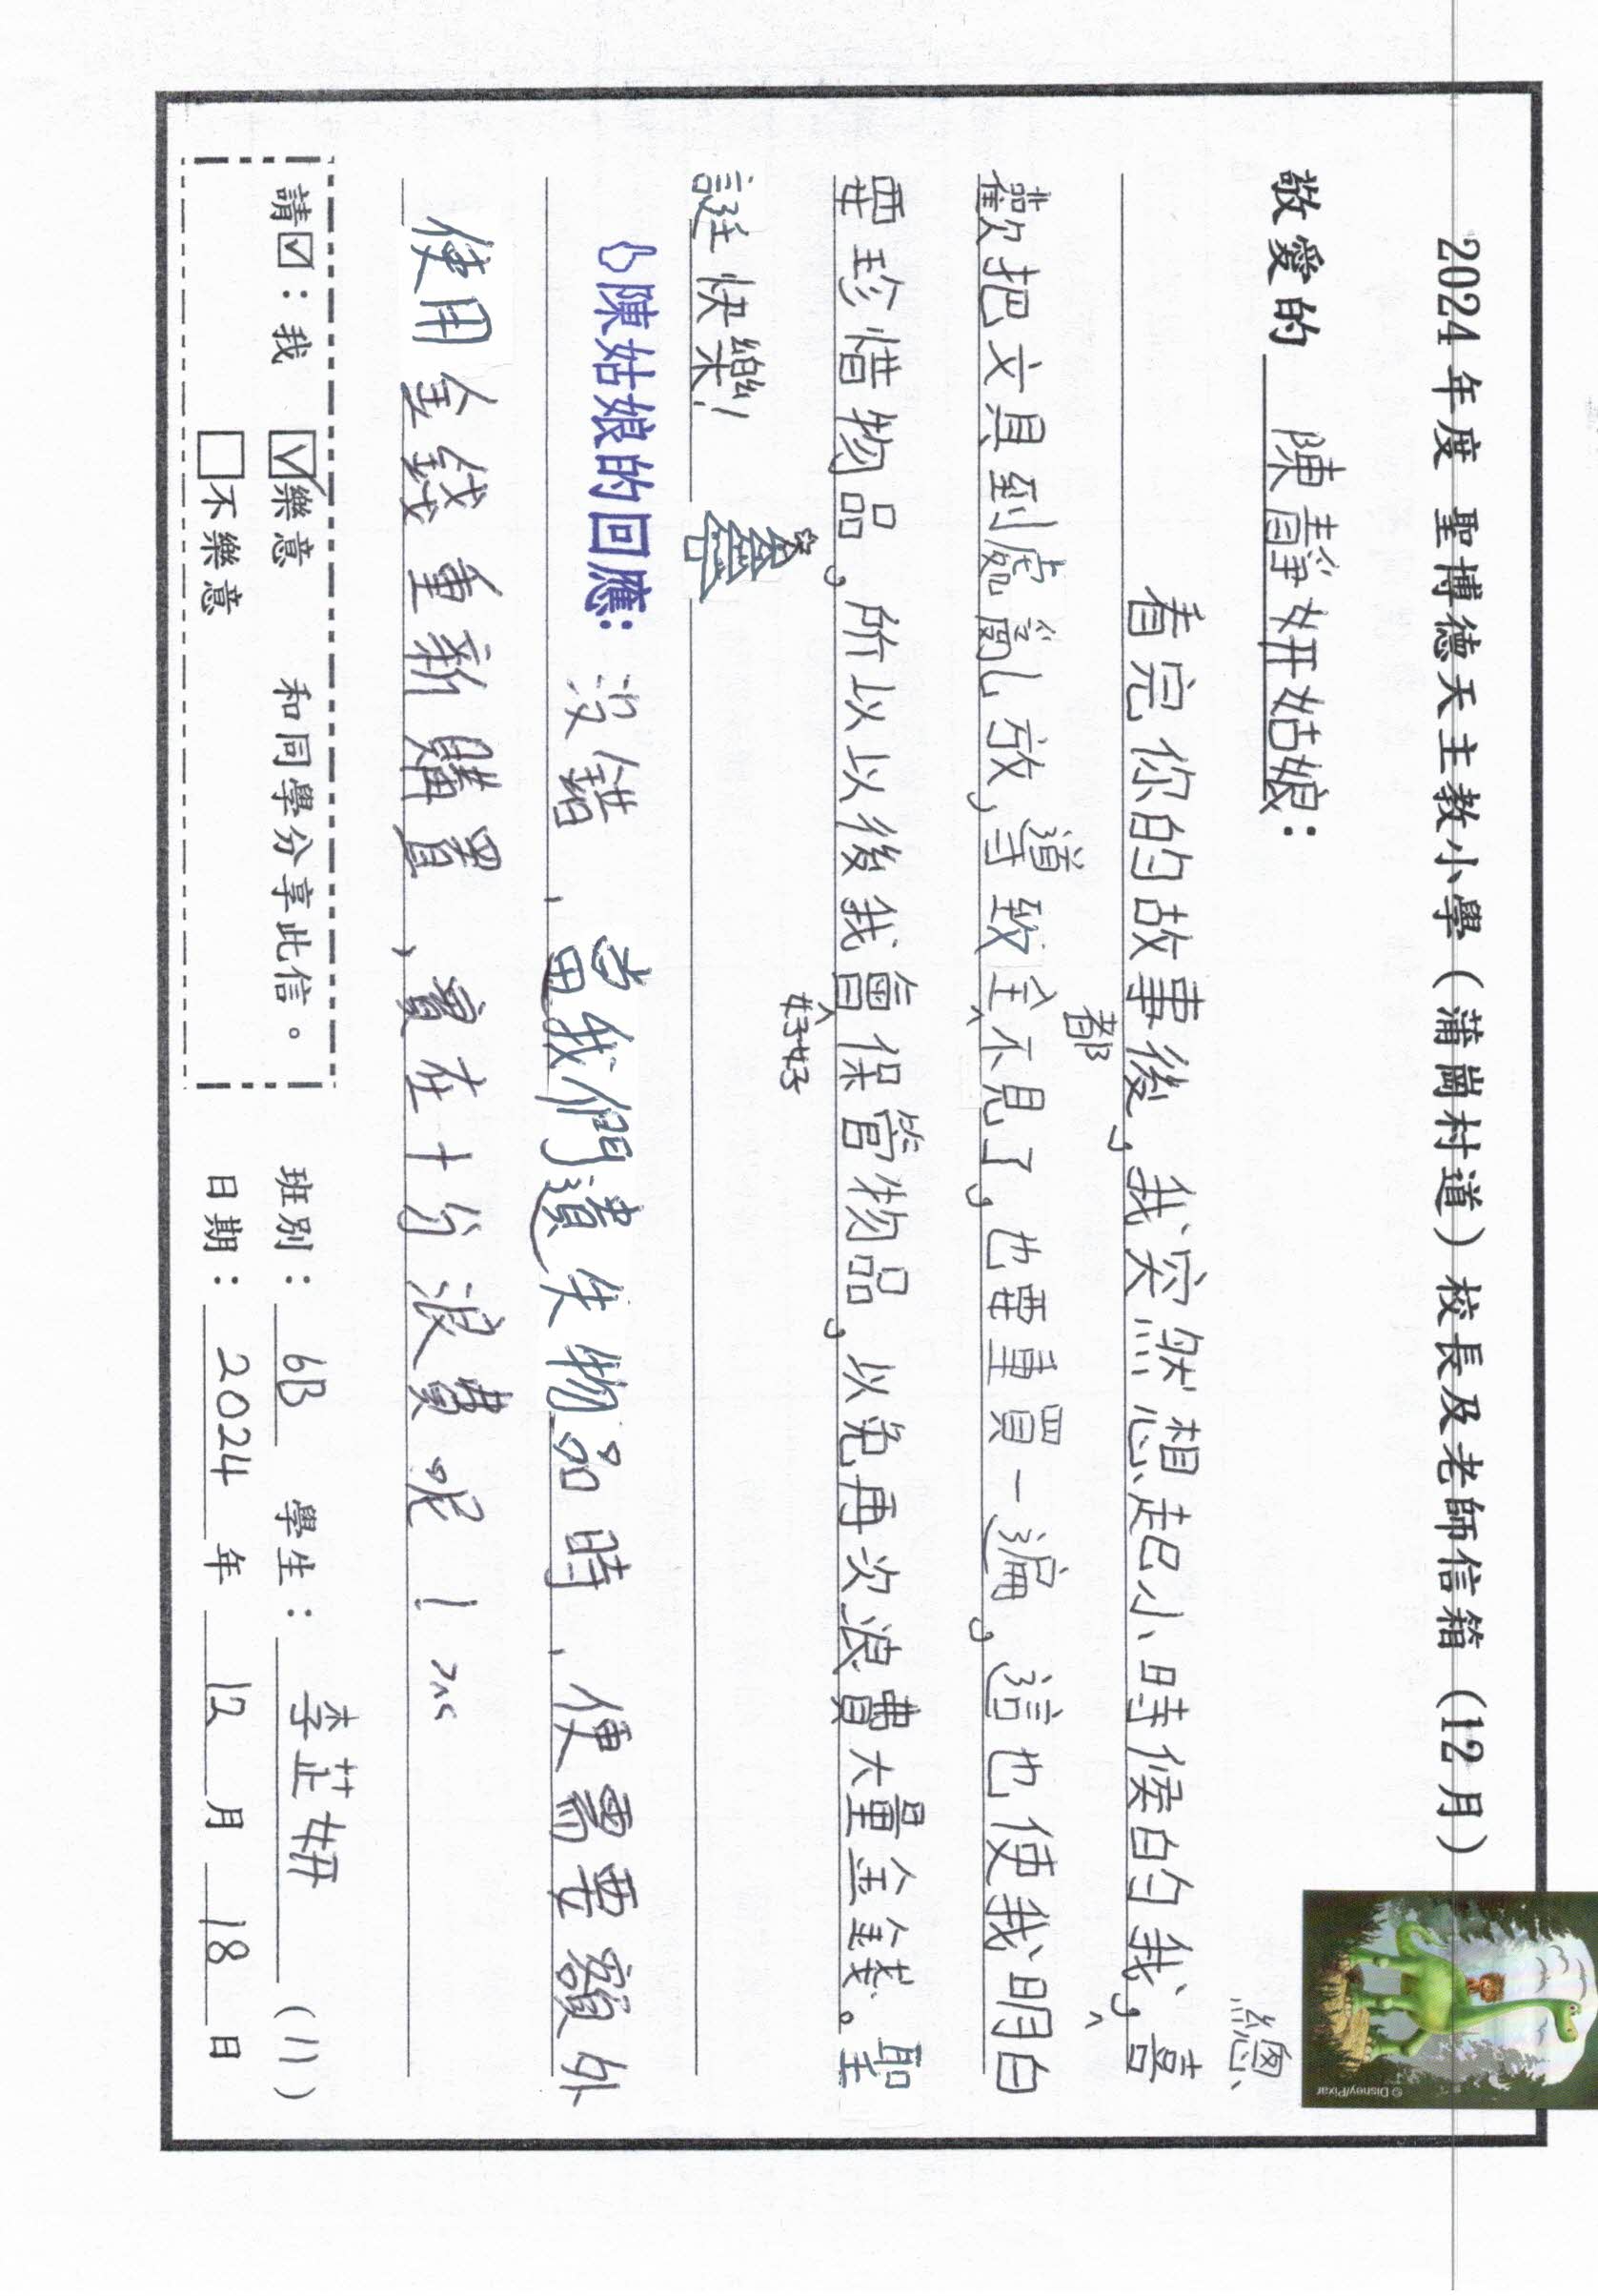 2024年度 聖博德天主教小學（蒲崗村道）校長及老師信箱（12月）
© Disney/Pixar
敬愛的 陳靜妍姑娘：
總
看完你的故事後，我突然想起小時候的我，喜
都
歡把文具到處亂放，導致全不見了，也要重買一遍，這也使我明白
要珍惜物品，所以以後我會保管物品，以免再次浪費大量金錢。聖
好好
誕快樂！
陳姑娘的回應：沒錯，當我們遺失物品時，便需要額外
使用金錢重新購置，實在十分浪費呢！
請☑：我 ☑樂意 和同學分享此信。
□不樂意
班別：6B 學生：李芷妍 (11)
日期：2024年12月18日